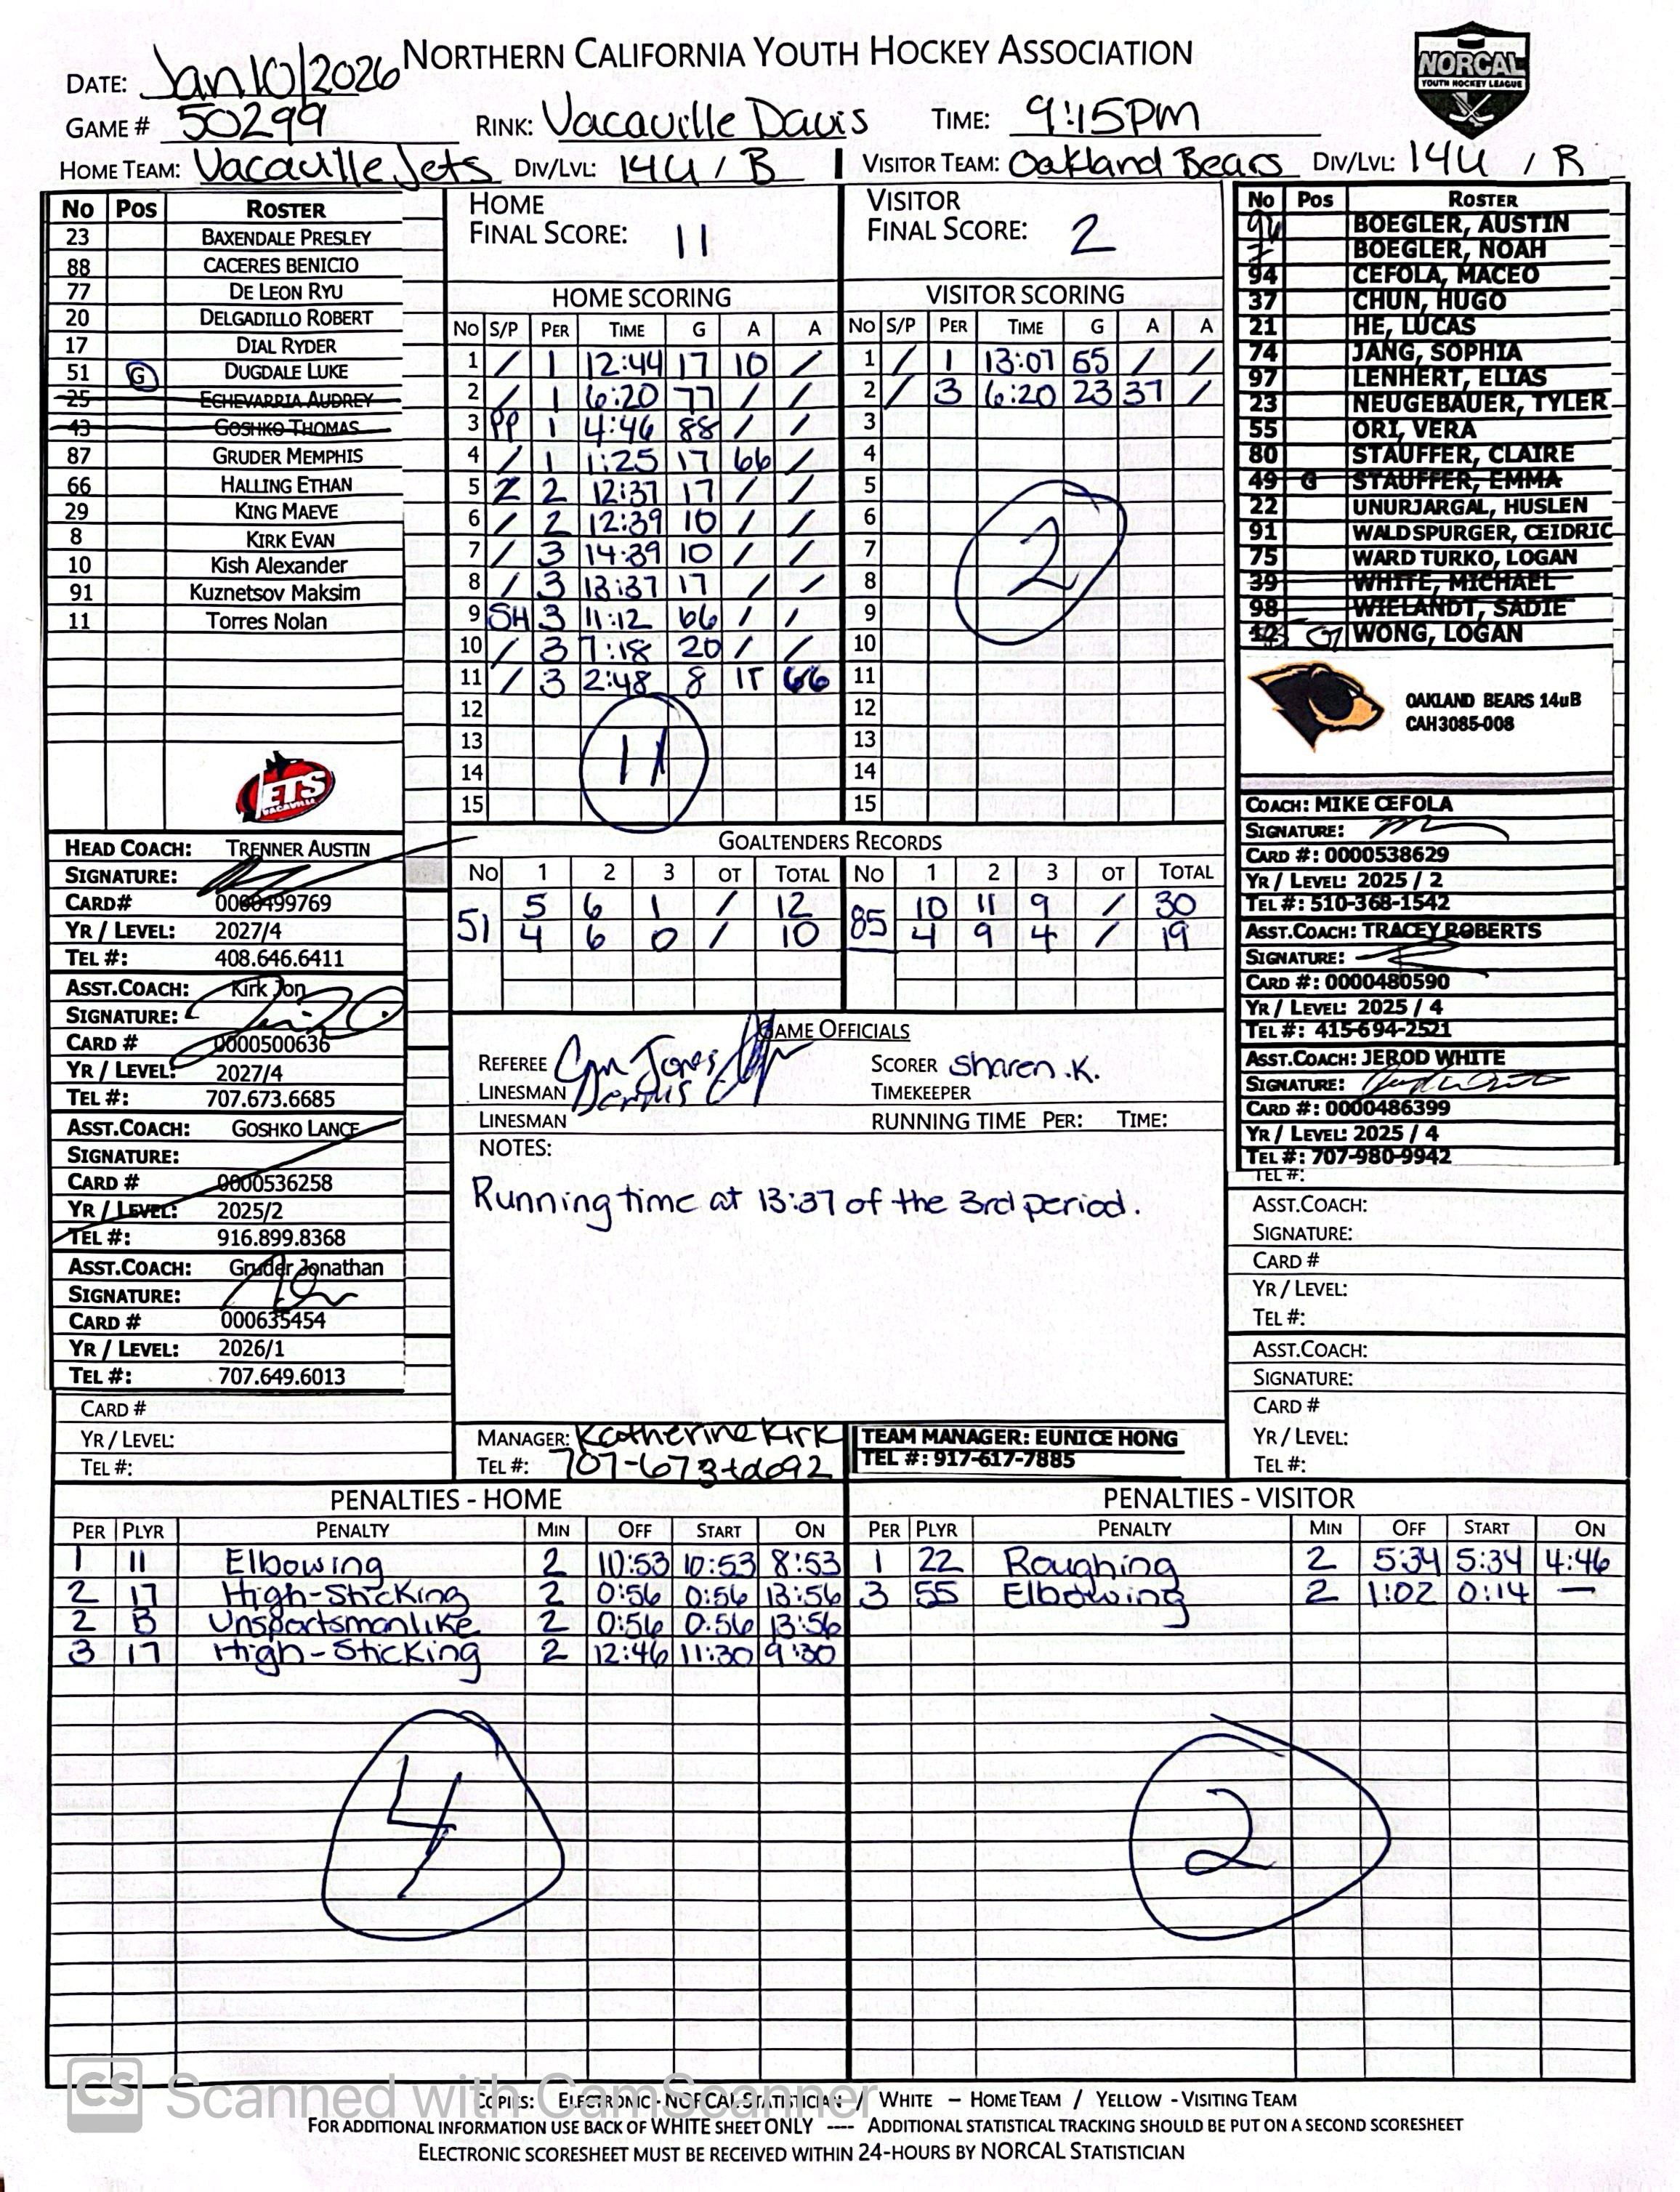 NORTHERN CALIFORNIA YOUTH HOCKEY ASSOCIATION
NORCAL
YOUTH HOCKEY LEAGUE
DATE: Jan 10/2026
GAME # 50299 RINK: Vacaville Davis TIME: 9:15PM
HOME TEAM: Vacaville Jets DIV/LVL: 14U / B VISITOR TEAM: Oakland Bears DIV/LVL: 14U / B
No Pos ROSTER
23 BAXENDALE PRESLEY
88 CACERES BENICIO
77 DE LEON RYU
20 DELGADILLO ROBERT
17 DIAL RYDER
51 G DUGDALE LUKE
25 ECHEVARRIA AUDREY
43 GOSHKO THOMAS
87 GRUDER MEMPHIS
66 HALLING ETHAN
29 KING MAEVE
8 KIRK EVAN
10 Kish Alexander
91 Kuznetsov Maksim
11 Torres Nolan
JETS
VACAVILLE
HEAD COACH: TRENNER AUSTIN
SIGNATURE:
CARD# 0000499769
YR / LEVEL: 2027/4
TEL #: 408.646.6411
ASST.COACH: Kirk Jon
SIGNATURE:
CARD # 0000500636
YR / LEVEL: 2027/4
TEL #: 707.673.6685
ASST.COACH: GOSHKO LANCE
SIGNATURE:
CARD # 0000536258
YR / LEVEL: 2025/2
TEL #: 916.899.8368
ASST.COACH: Gruder Jonathan
SIGNATURE:
CARD # 000635454
YR / LEVEL: 2026/1
TEL #: 707.649.6013
CARD #
YR / LEVEL:
TEL #:
HOME
FINAL SCORE: 11
VISITOR
FINAL SCORE: 2
HOME SCORING
No S/P PER TIME G A A
1 / 1 12:44 17 10 /
2 / 1 6:20 77 / /
3 PP 1 4:46 88 / /
4 / 1 1:25 17 66 /
5 2 12:37 17 / /
6 / 2 12:39 10 / /
7 / 3 14:39 10 / /
8 / 3 13:37 17 / /
9 SH 3 11:12 66 / /
10 / 3 7:18 20 / /
11 / 3 2:48 8 66
12
13
14
15
11
VISITOR SCORING
No S/P PER TIME G A A
1 / 1 13:07 55 / /
2 / 3 6:20 23 37 /
3
4
5
6
7
8
9
10
11
12
13
14
15
2
GOALTENDERS RECORDS
No 1 2 3 OT TOTAL No 1 2 3 OT TOTAL
51 5 6 1 / 12 85 10 11 9 / 30
4 6 0 / 10 4 9 4 / 19
GAME OFFICIALS
REFEREE Jones SCORER Sharen .K.
LINESMAN Dennis TIMEKEEPER
LINESMAN RUNNING TIME PER: TIME:
NOTES:
Running time at 13:37 of the 3rd period.
MANAGER: Katherine Kirk
TEL #: 707-673-
TEAM MANAGER: EUNICE HONG
TEL #: 917-617-7885
No Pos ROSTER
BOEGLER, AUSTIN
BOEGLER, NOAH
94 CEFOLA, MACEO
37 CHUN, HUGO
21 HE, LUCAS
74 JANG, SOPHIA
97 LENHERT, ELIAS
23 NEUGEBAUER, TYLER
55 ORI, VERA
80 STAUFFER, CLAIRE
49 G STAUFFER, EMMA
22 UNURJARGAL, HUSLEN
91 WALDSPURGER, CEIDRIC
75 WARD TURKO, LOGAN
39 WHITE, MICHAEL
98 WIELANDT, SADIE
G WONG, LOGAN
OAKLAND BEARS 14uB
CAH3085-008
COACH: MIKE CEFOLA
SIGNATURE:
CARD #: 0000538629
YR / LEVEL: 2025 / 2
TEL #: 510-368-1542
ASST.COACH: TRACEY ROBERTS
SIGNATURE:
CARD #: 0000480590
YR / LEVEL: 2025 / 4
TEL #: 415-694-2521
ASST.COACH: JEROD WHITE
SIGNATURE:
CARD #: 0000486399
YR / LEVEL: 2025 / 4
TEL #: 707-980-9942
TEL #:
ASST.COACH:
SIGNATURE:
CARD #
YR / LEVEL:
TEL #:
ASST.COACH:
SIGNATURE:
CARD #
YR / LEVEL:
TEL #:
PENALTIES - HOME
PER PLYR PENALTY MIN OFF START ON
1 11 Elbowing 2 10:53 10:53 8:53
2 17 High-Sticking 2 0:56 0:56 13:56
2 B Unsportsmanlike 2 0:56 0:56 13:56
3 17 High-Sticking 2 12:46 11:30 9:30
4
PENALTIES - VISITOR
PER PLYR PENALTY MIN OFF START ON
1 22 Roughing 2 5:34 5:34 4:46
3 55 Elbowing 2 1:02 0:14 —
2
CS Scanned with CamScanner
COPIES: ELECTRONIC - NORCAL STATISTICIAN / WHITE – HOME TEAM / YELLOW - VISITING TEAM
FOR ADDITIONAL INFORMATION USE BACK OF WHITE SHEET ONLY ---- ADDITIONAL STATISTICAL TRACKING SHOULD BE PUT ON A SECOND SCORESHEET
ELECTRONIC SCORESHEET MUST BE RECEIVED WITHIN 24-HOURS BY NORCAL STATISTICIAN